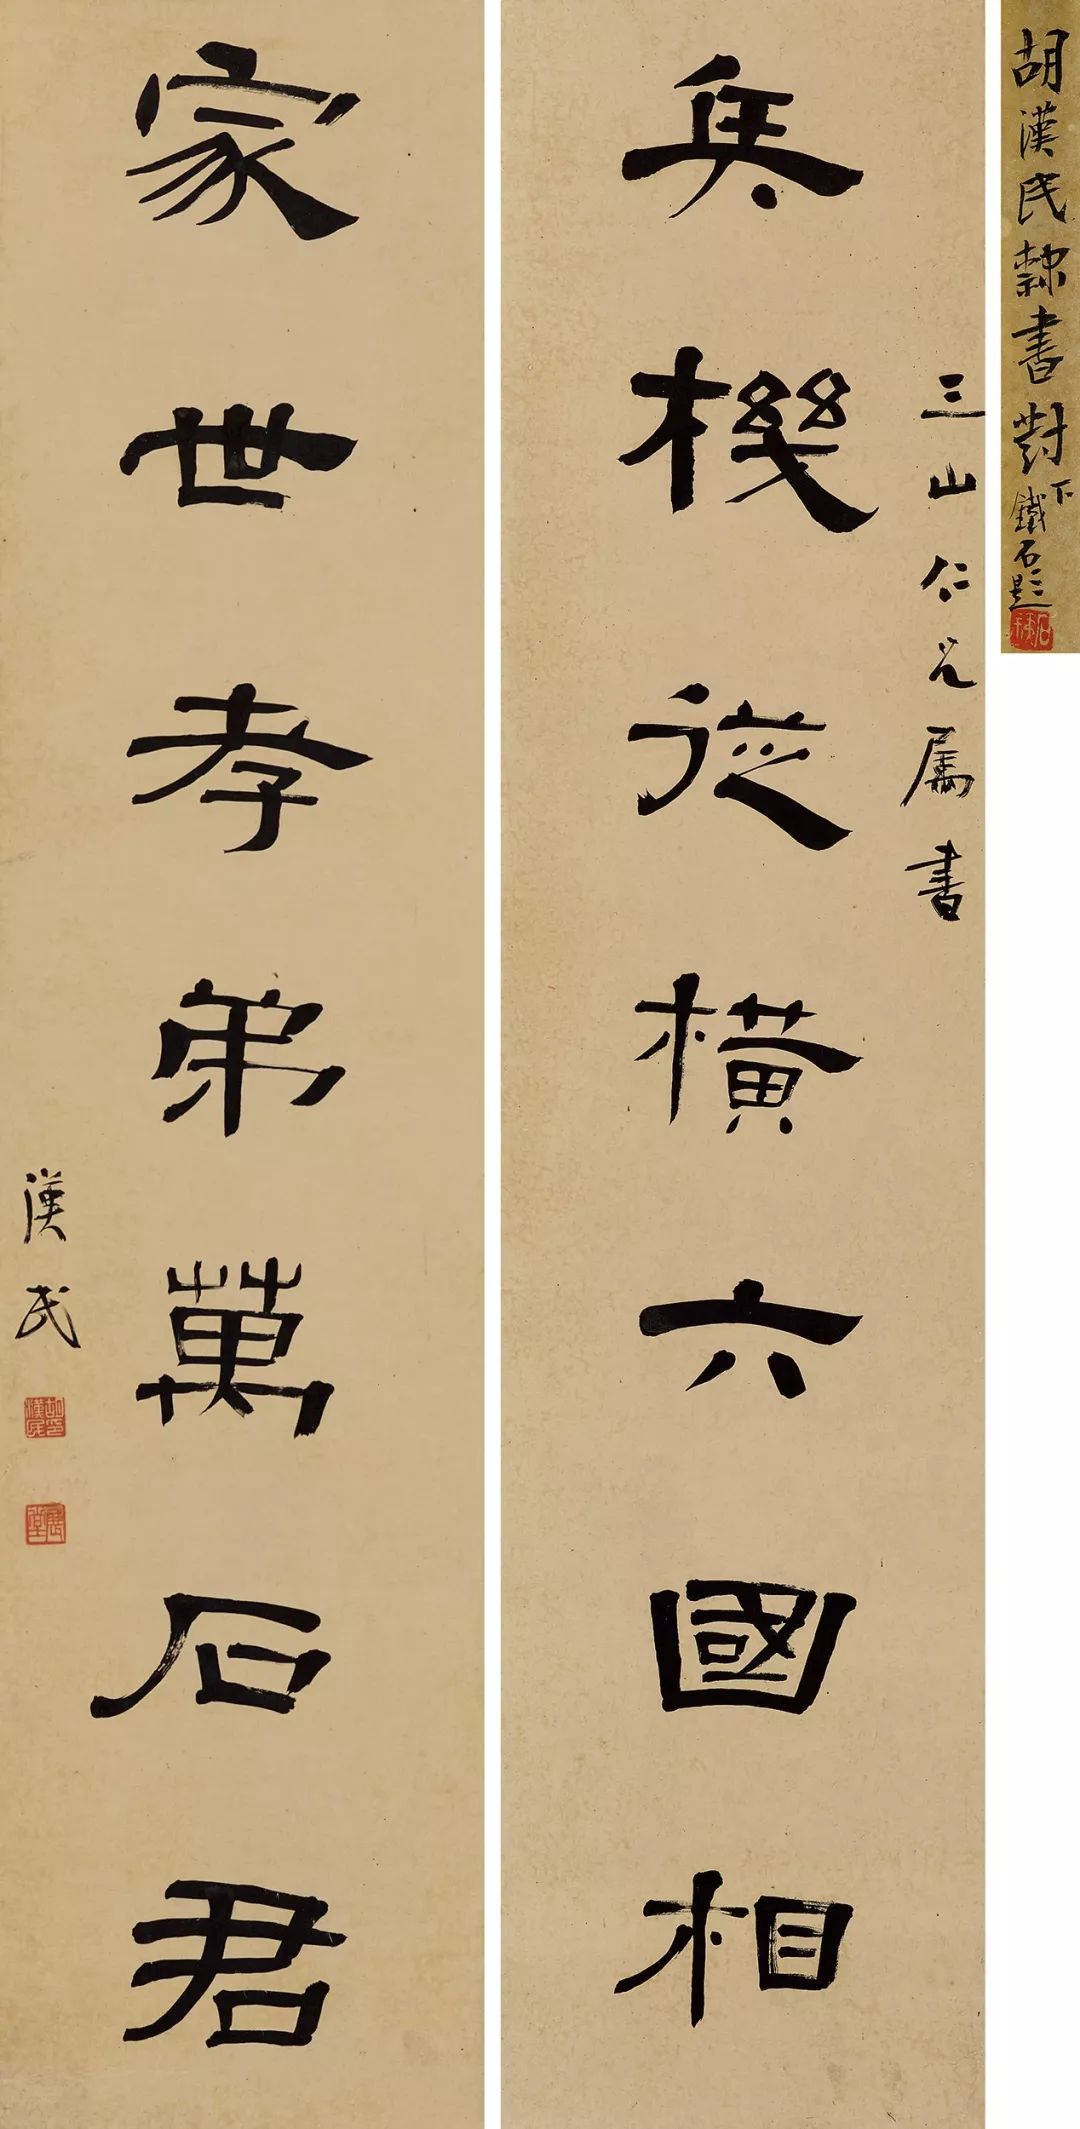 胡漢民隸書對下
鐵石題
三山仁兄屬書
兵機從橫六國相
家世孝弟萬石君
漢民
胡漢民印
展堂